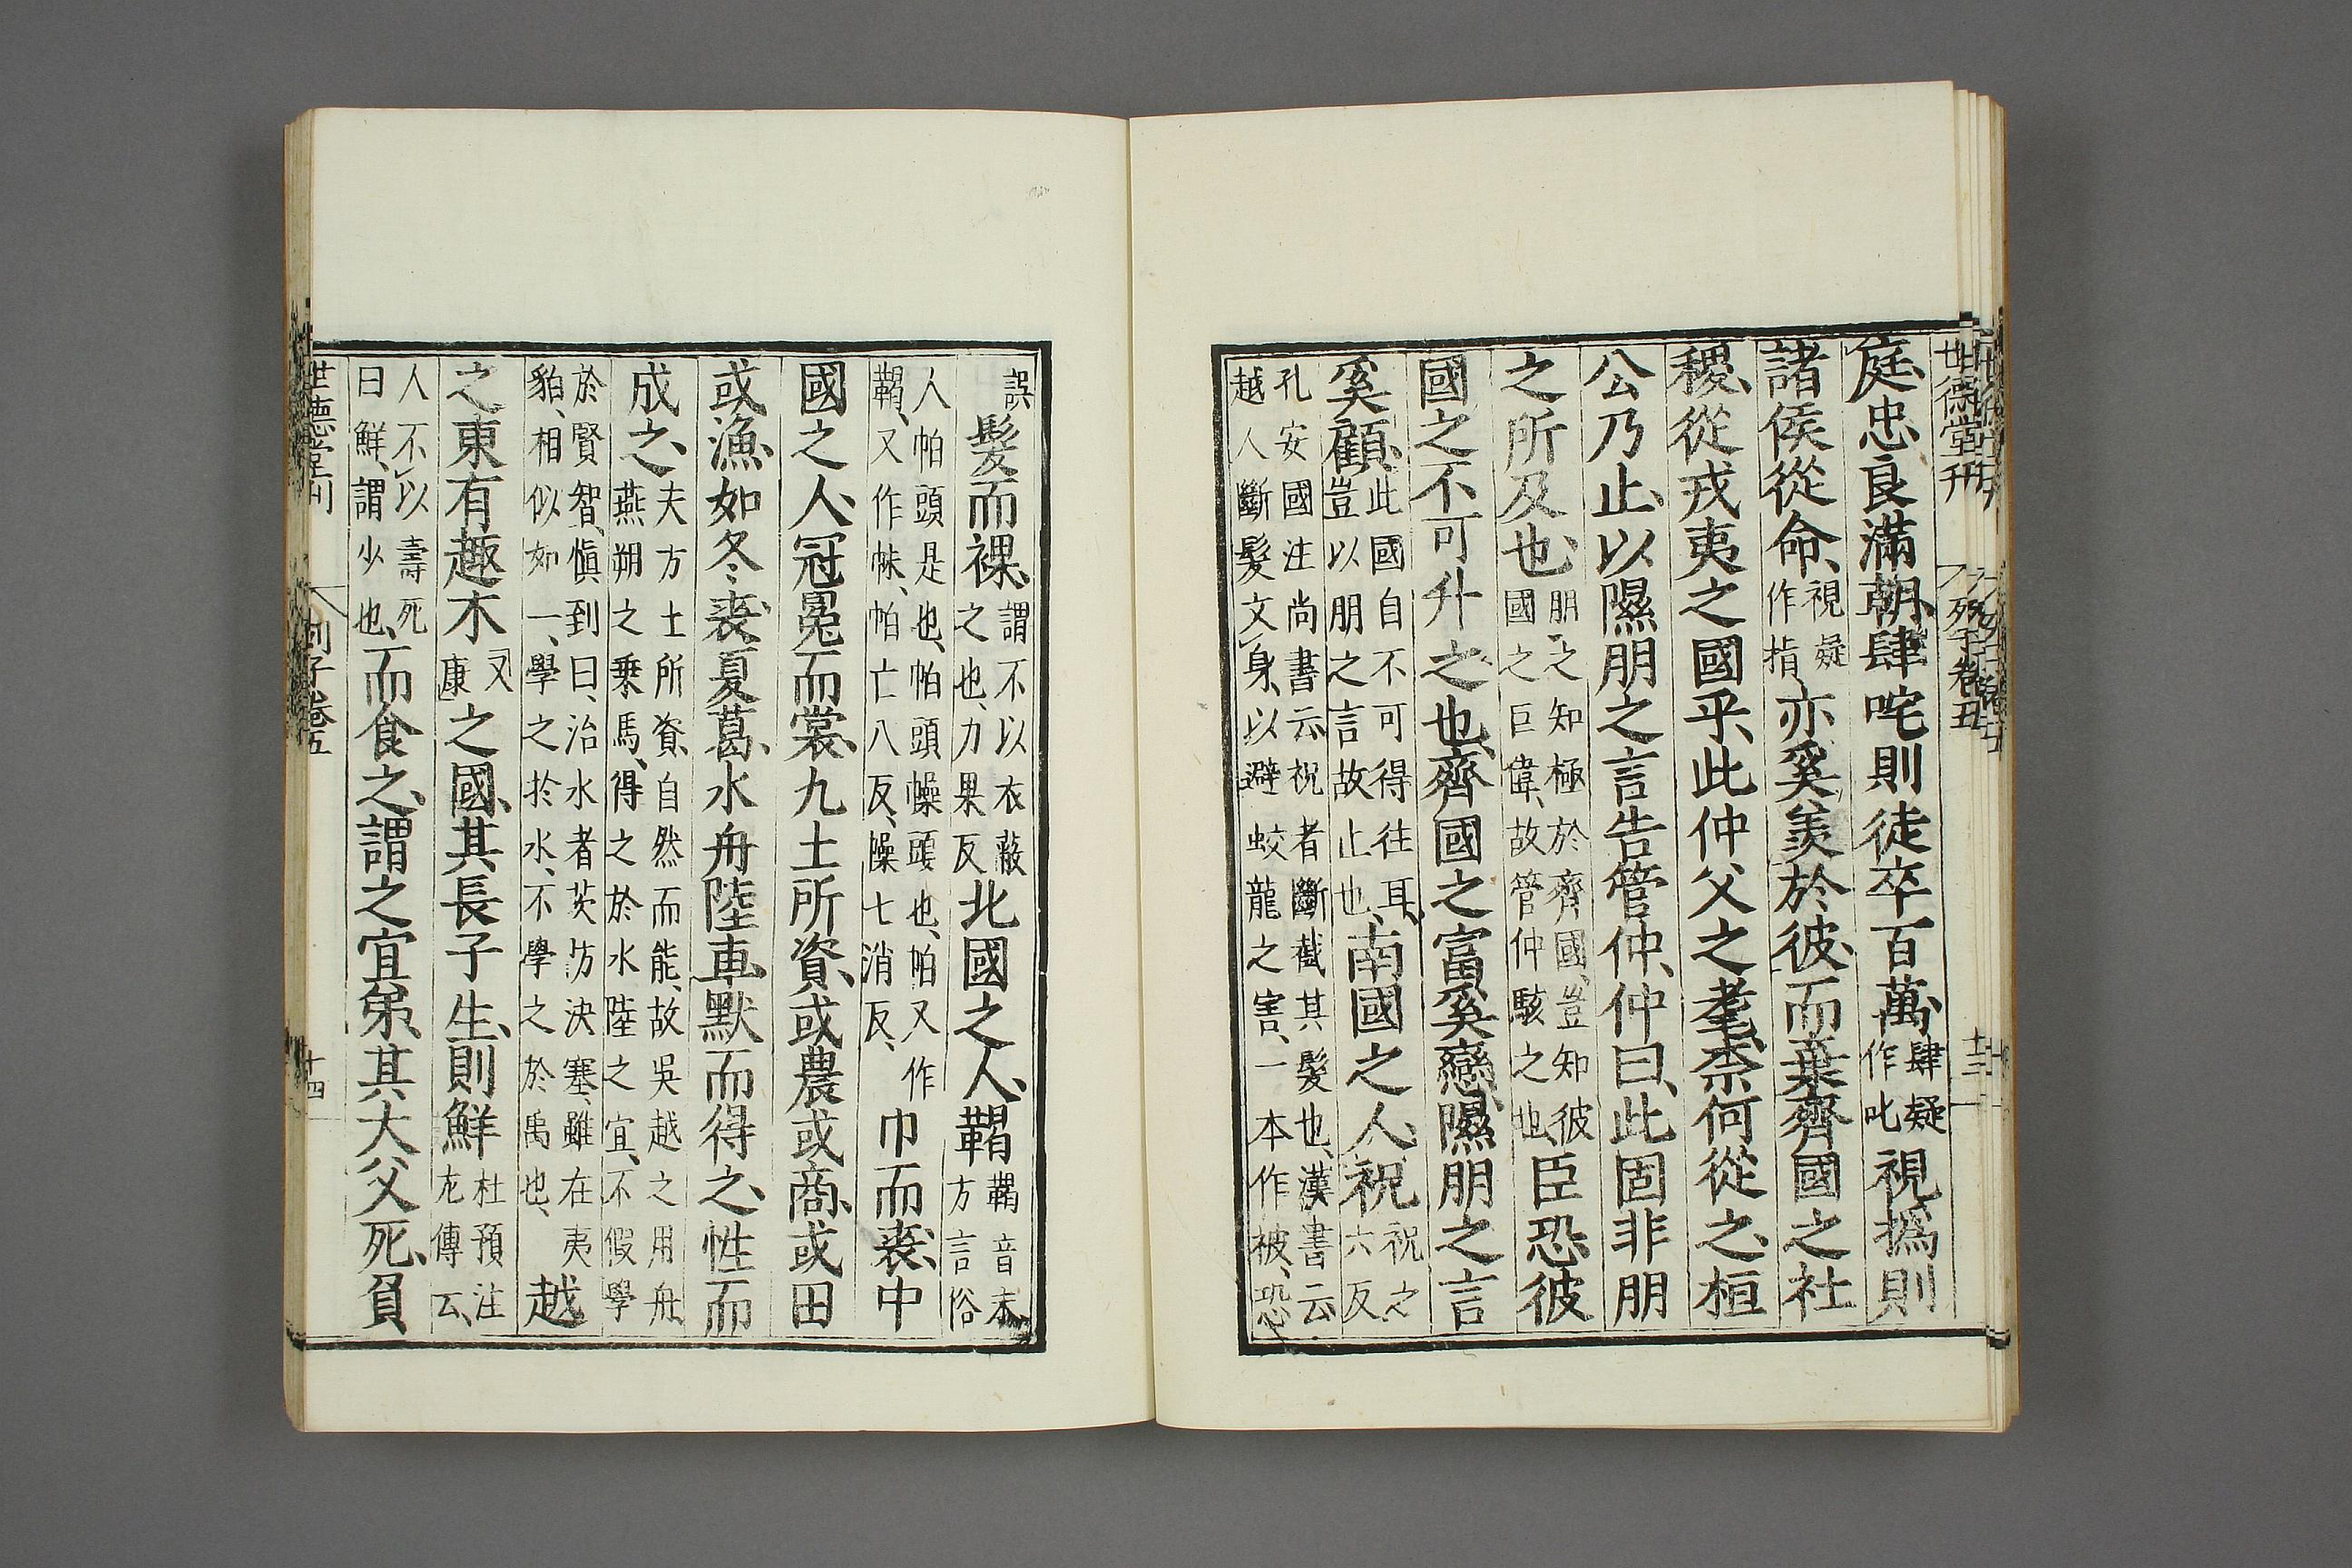 世德堂刊
列子卷五
十三
庭、忠良滿朝、肆咤則徒卒百萬、肆疑作叱視撝則
諸侯從命、視疑作指、亦奚羡於彼、而棄齊國之社
稷、從戎夷之國乎、此仲父之耄、柰何從之、桓
公乃止、以隰朋之言告管仲、仲曰、此固非朋
之所及也、朋之知極於齊國、豈知彼國之巨偉、故管仲駭之也、臣恐彼
國之不可升之也、齊國之富奚戀、隰朋之言
奚顧、此國自不可得往耳、豈以朋之言故止也、南國之人、祝祝之六反
孔安國注尚書云祝者斷截其髮也、漢書云越人斷髮文身、以避蛟龍之害、一本作被、恐
誤髮而裸、謂不以衣蔽之也、力果反北國之人、鞨鞨音末方言俗
人帕頭是也、帕頭幧頭也、帕又作鞨、又作帓、帕亡八反、幧七消反、巾而裘、中
國之人、冠冕而裳、九土所資、或農或商、或田
或漁、如冬裘、夏葛、水舟陸車、默而得之、性而
成之、夫方土所資、自然而能、故吳越之用舟燕朔之乗馬、得之於水陸之宜、不假學
於賢智、愼到曰、治水者茨防決塞、雖在夷貊、相似如一、學之於水、不學之於禹也、越
之東有趣木又康之國、其長子生、則鮮杜預注左傳云、
人不以壽死曰鮮、謂少也、而食之、謂之宜弟、其大父死、負
世德堂刊
列子卷五
十四